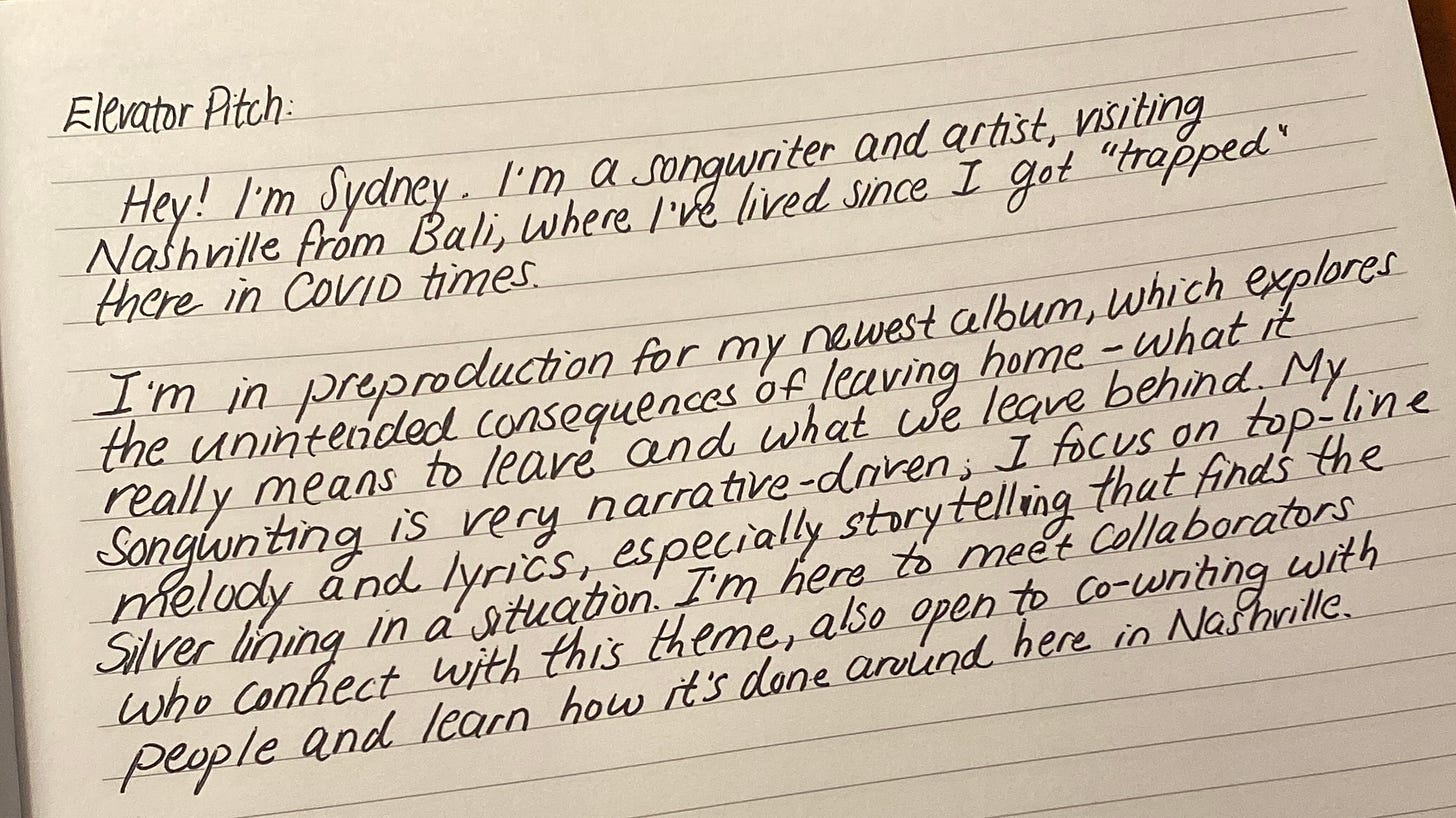 Elevator Pitch:
Hey! I'm Sydney. I'm a songwriter and artist, visiting
Nashville from Bali, where I've lived since I got "trapped"
there in COVID times.
I'm in preproduction for my newest album, which explores
the unintended consequences of leaving home - what it
really means to leave and what we leave behind. My
Songwriting is very narrative-driven; I focus on top-line
melody and lyrics, especially storytelling that finds the
Silver lining in a situation. I'm here to meet collaborators
who connect with this theme, also open to co-writing with
people and learn how it's done around here in Nashville.